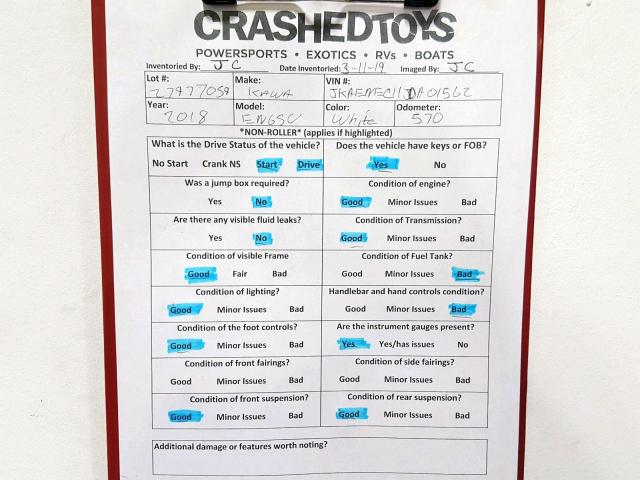 CRASHEDTOYS
POWERSPORTS • EXOTICS • RVs • BOATS
Inventoried By: JC Date Inventoried: 3-11-19 Imaged By: JC
Lot #: Make: VIN #:
27977059 KAWA
Year: Model: Color: Odometer:
2018 EN650 White 570
*NON-ROLLER* (applies if highlighted)
What is the Drive Status of the vehicle? Does the vehicle have keys or FOB?
No Start Crank NS Start Drive Yes No
Was a jump box required? Condition of engine?
Yes No Good Minor Issues Bad
Are there any visible fluid leaks? Condition of Transmission?
Yes No Good Minor Issues Bad
Condition of visible Frame Condition of Fuel Tank?
Good Fair Bad Good Minor Issues Bad
Condition of lighting? Handlebar and hand controls condition?
Good Minor Issues Bad Good Minor Issues Bad
Condition of the foot controls? Are the instrument gauges present?
Good Minor Issues Bad Yes Yes/has issues No
Condition of front fairings? Condition of side fairings?
Good Minor Issues Bad Good Minor Issues Bad
Condition of front suspension? Condition of rear suspension?
Good Minor Issues Bad Good Minor Issues Bad
Additional damage or features worth noting?